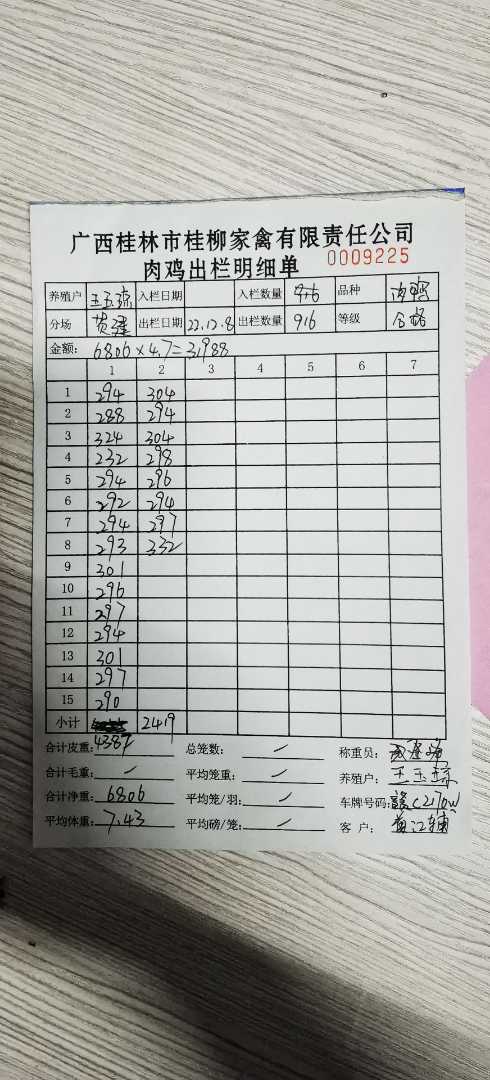 广西桂林市桂柳家禽有限责任公司
肉鸡出栏明细单 0009225
养殖户 王玉琼 入栏日期 入栏数量 926 品种 肉鸭
分场 黄 出栏日期 22.12.8 出栏数量 916 等级 合格
金额: 6806×4.7=31988
1 2 3 4 5 6 7
1 294 304
2 288 294
3 324 304
4 232 298
5 294 296
6 292 294
7 294 297
8 293 332
9 301
10 296
11 297
12 294
13 301
14 297
15 290
小计 2419
合计皮重: 4387 总笼数: / 称重员:
合计毛重: / 平均笼重: / 养殖户: 王玉琼
合计净重: 6806 平均笼/羽: / 车牌号码: 赣C2170W
平均体重: 7.43 平均磅/笼: / 客 户: